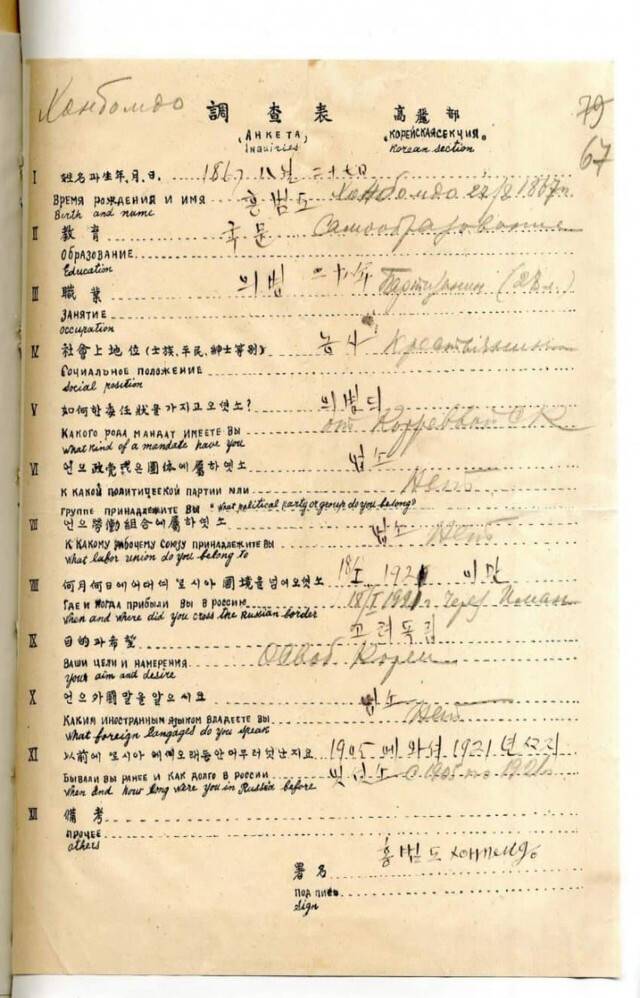 Хонбомдо 調查表 高麗部 79
„АНКЕТА„ „КОРЕЙСКАЯ СЕКЦИЯ„ 67
Inquiries Korean section
I 姓名과生年,月,日. 1867 八月 二十七日
ВРЕМЯ РОЖДЕНИЯ И ИМЯ 홍범도 Хонбомдо 27/8 1867
Birth and name
II 教育 국문 Самообразование
ОБРАЗОВАНИЕ
Education
III 職業 의병 二十年 Партизанин
ЗАНЯТИЕ
occupation
IV 社會上地位(士族,平民,紳士等別) 농사
СОЦИАЛЬНОЕ ПОЛОЖЕНИЕ
Social position
V 如何한委任狀을가지고오엿소? 의병디
КАКОГО РОДА МАНДАТ ИМЕЕТЕ ВЫ от
What kind of a mandate have you
VI 언으政黨或은團体에屬하엿소 법소
К КАКОЙ ПОЛИТИЧЕСКОЙ ПАРТИИ ИЛИ Нет
ГРУППЕ ПРИНАДЛЕЖИТЕ ВЫ What political party or group do you belong?
VII 언으勞働組合에屬하엿소 법소
К КАКОМУ РАБОЧЕМУ СОЮЗУ ПРИНАДЛЕЖИТЕ ВЫ Нет
What labor union do you belong to
VIII 何月何日에어대여로시아國境을넘어오엿소 18/I 1921 이만
ГДЕ И КОГДА ПРИБЫЛИ ВЫ В РОССИЮ 18/I 1921 г. через Иман
When and where did you cross the Russian border
IX 目的과希望 고려독립
ВАШИ ЦЕЛИ И НАМЕРЕНИЯ Освоб Кореи
Your aim and desire
X 언으外國말을알으시요 법소
КАКИМ ИНОСТРАННЫМ ЯЗЫКОМ ВЛАДЕЕТЕ ВЫ Нет
What foreign langages do you speak
XI 以前에로시아에예오래동안머무러닛난지요 1921년
БЫВАЛИ ВЫ РАНЕЕ И КАК ДОЛГО В РОССИИ
When and how long were you in Russia before
XII 備考
ПРОЧЕЕ
others
홍범도
署名
ПОДПИСЬ
Sign